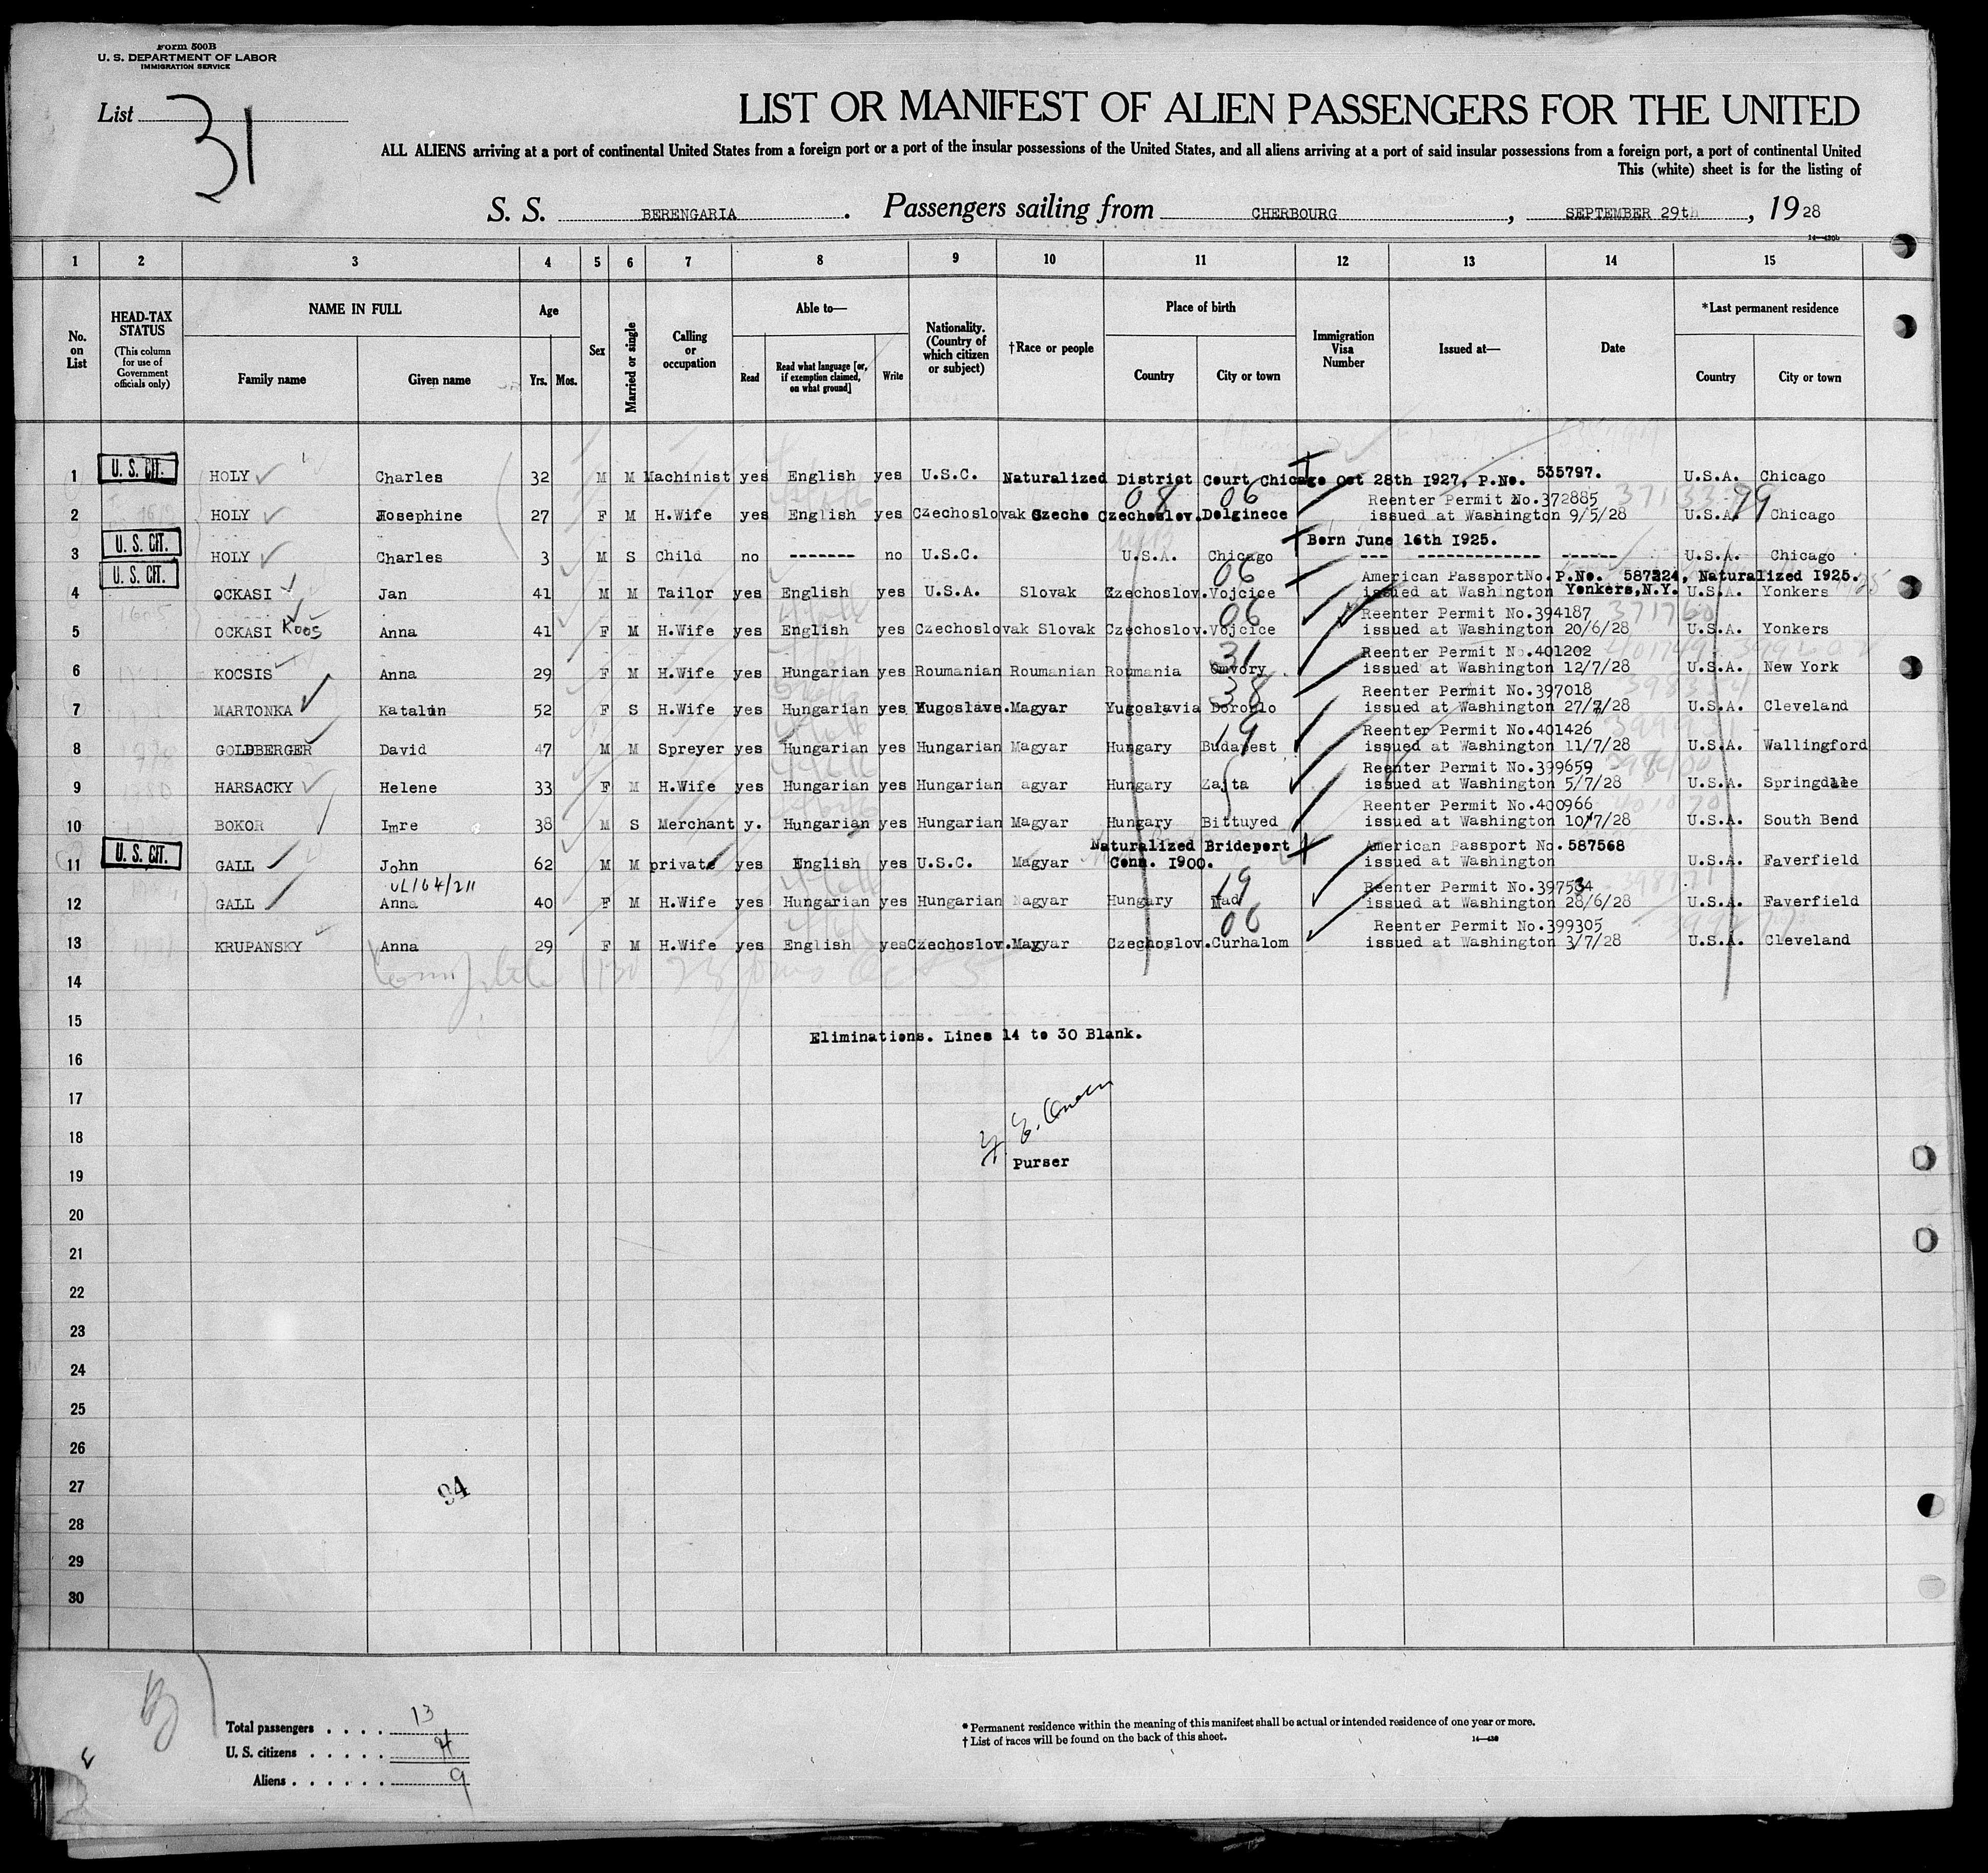 Form 500B
U. S. DEPARTMENT OF LABOR
IMMIGRATION SERVICE
List 31
LIST OR MANIFEST OF ALIEN PASSENGERS FOR THE UNITED
ALL ALIENS arriving at a port of continental United States from a foreign port or a port of the insular possessions of the United States, and all aliens arriving at a port of said insular possessions from a foreign port, a port of continental United
This (white) sheet is for the listing of
S. S. BERENGARIA. Passengers sailing from CHERBOURG, SEPTEMBER 29th, 1928
14—430b
1 2 3 4 5 6 7 8 9 10 11 12 13 14 15
No. on List
HEAD-TAX STATUS
(This column for use of Government officials only)
NAME IN FULL
Family name
Given name
Age
Yrs. Mos.
Sex
Married or single
Calling or occupation
Able to—
Read
Read what language [or, if exemption claimed, on what ground]
Write
Nationality. (Country of which citizen or subject)
†Race or people
Place of birth
Country
City or town
Immigration Visa Number
Issued at—
Date
*Last permanent residence
Country
City or town
1 U. S. CIT. HOLY Charles 32 M M Machinist yes English yes U.S.C. Naturalized District Court Chicago Oct 28th 1927, P.No. 535797. U.S.A. Chicago
08 06 Reenter Permit No.372885 99
2 HOLY Josephine 27 F M H.Wife yes English yes Czechoslovak Czecho Czechoslov. Dolginece issued at Washington 9/5/28 U.S.A. Chicago
U. S. CIT. Born June 16th 1925.
3 HOLY Charles 3 M S Child no ------- no U.S.C. U.S.A. Chicago --- ------------- ------ U.S.A. Chicago
U. S. CIT. 06 American Passport No. P.No. 587224, Naturalized 1925.
4 OCKASI Jan 41 M M Tailor yes English yes U.S.A. Slovak Czechoslov. Vojcice issued at Washington Yonkers, N.Y. U.S.A. Yonkers
06 Reenter Permit No.394187 371760
5 OCKASI Koos Anna 41 F M H.Wife yes English yes Czechoslovak Slovak Czechoslov. Vojcice issued at Washington 20/6/28 U.S.A. Yonkers
31 Reenter Permit No.401202
6 KOCSIS Anna 29 F M H.Wife yes Hungarian yes Roumanian Roumanian Roumania Omvory issued at Washington 12/7/28 U.S.A. New York
38 Reenter Permit No.397018
7 MARTONKA Katalin 52 F S H.Wife yes Hungarian yes Yugoslavs. Magyar Yugoslavia Doroslo issued at Washington 27/7/28 U.S.A. Cleveland
19 Reenter Permit No.401426 399931
8 GOLDBERGER David 47 M M Spreyer yes Hungarian yes Hungarian Magyar Hungary Budapest issued at Washington 11/7/28 U.S.A. Wallingford
Reenter Permit No.399659 398400
9 HARSACKY Helene 33 F M H.Wife yes Hungarian yes Hungarian agyar Hungary Zajta issued at Washington 5/7/28 U.S.A. Springdale
Reenter Permit No.400966 401070
10 BOKOR Imre 38 M S Merchant y. Hungarian yes Hungarian Magyar Hungary Bittuyed issued at Washington 10/7/28 U.S.A. South Bend
U. S. CIT. Naturalized Brideport American Passport No.587568
11 GALL John 62 M M private yes English yes U.S.C. Magyar Conn. 1900. issued at Washington U.S.A. Faverfield
VL/64/211 19 Reenter Permit No.397534
12 GALL Anna 40 F M H.Wife yes Hungarian yes Hungarian Magyar Hungary Mad issued at Washington 28/6/28 U.S.A. Faverfield
06 Reenter Permit No.399305
13 KRUPANSKY Anna 29 F M H.Wife yes English yes Czechoslov. Magyar Czechoslov. Curhalom issued at Washington 3/7/28 U.S.A. Cleveland
14
15
Eliminations. Lines 14 to 30 Blank.
16
17
18
19 Purser
20
21
22
23
24
25
26
27 94
28
29
30
Total passengers . . . . 13
U. S. citizens . . . . . 4
Aliens . . . . . . 9
* Permanent residence within the meaning of this manifest shall be actual or intended residence of one year or more.
† List of races will be found on the back of this sheet. 14—430